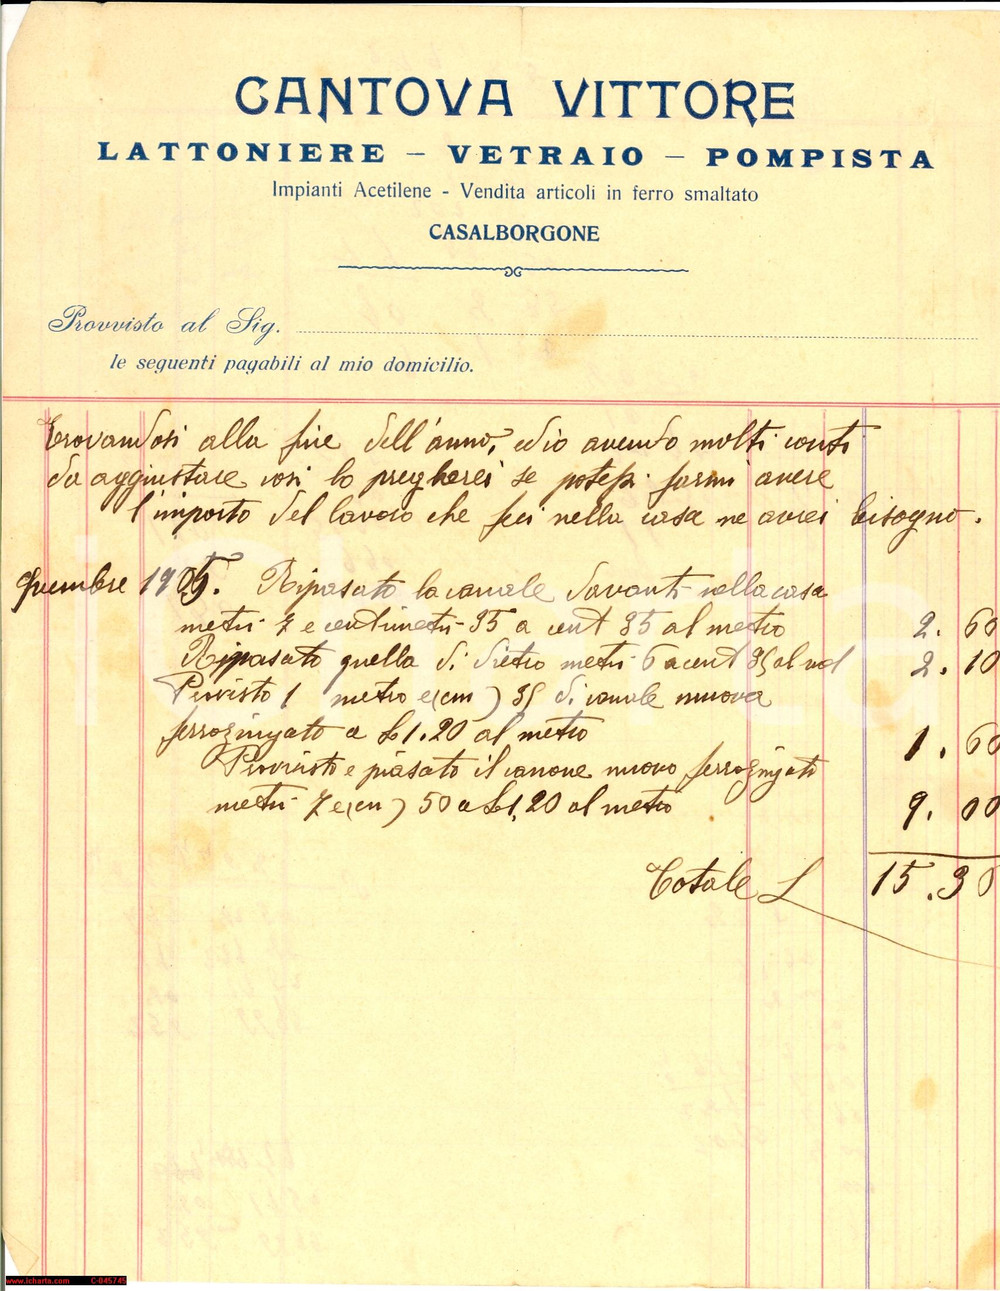 CANTOVA VITTORE
LATTONIERE – VETRAIO – POMPISTA
Impianti Acetilene - Vendita articoli in ferro smaltato
CASALBORGONE
Provvisto al Sig.
le seguenti pagabili al mio domicilio.
Trovandosi alla fine dell'anno, ed io avendo molti conti
da aggiustare cosi lo pregherei se potessi farmi avere
l'importo del lavoro che feci nella casa ne avrei bisogno.
9vembre 1905. Ripasato la canale davanti nella casa
metri 7 e centimetri 35 a cent 35 al metro 2. 60
Ripasato quella di dietro metri 6 a cent 35 al 2. 10
Provisto 1 metro e (cm) 35 di canale nuova
ferrozingato a L 1.20 al metro 1. 60
Provvisto e piasato il canone nuovo ferrozingato
metri 7 e (cm) 50 a L 1,20 al metro 9. 00
Totale L 15.30
www.icharta.com C-045745